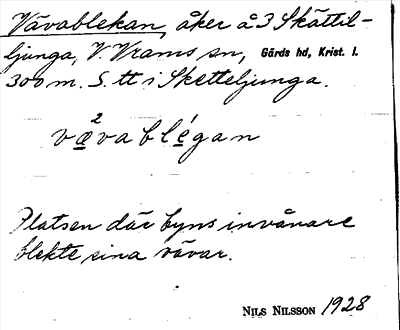 Vävablekan, åker å 3 Skättil-
ljunga, V. Vrams sn, Gärds hd, Krist. l.
300 m. S. tt i Sketteljunga.
væ²vablégan
Platsen där byns invånare
blekte sina vävar.
NILS NILSSON 1928